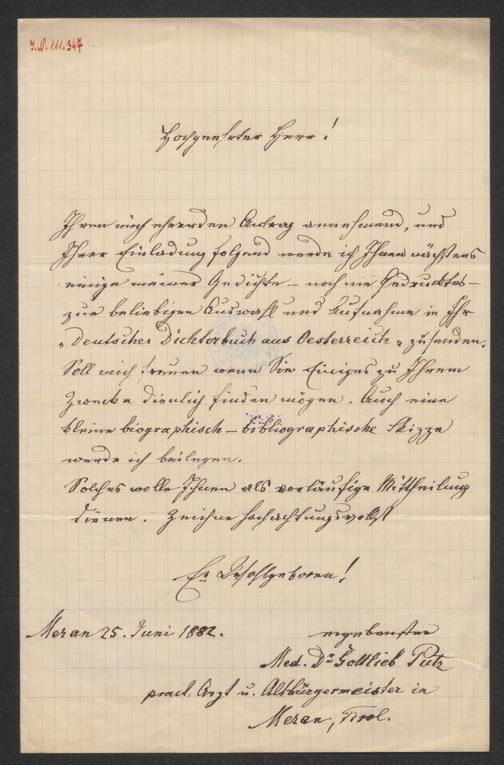 I.N. 111.347
Hochgeehrter Herr!
Ihren mich ehrenden Antrag annehmend, und
Ihrer Einladung folgend werde ich Ihnen nächstens
einige meiner Gedichte – noch nie Gedrucktes –
zur beliebigen Auswahl und Aufnahme in Ihr
„Deutsches Dichterbuch aus Oesterreich" zusenden.
Soll mich freuen wenn Sie Einiges zu Ihrem
Zwecke dienlich finden mögen. Auch eine
kleine biographisch – bibliographische Skizze
werde ich beilegen.
Solches wolle Ihnen als vorläufige Mittheilung
dienen. Zeichne hochachtungsvollst
Er Wohlgeboren!
Meran 25. Juni 1882.
ergebenster
Med. Dr Gottlieb Putz
pract. Arzt u. Altbürgermeister in
Meran, Tirol.